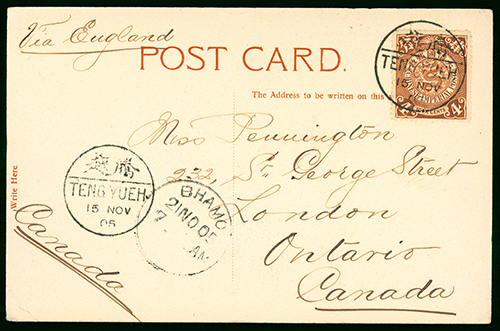 Via England
POST CARD.
The Address to be written on this
Write Here
Miss Pennington
232, St. George Street
London
Ontario
Canada
Canada
TENGYUEH
15 NOV
05
BHAMO
21 NO 05
7 AM
TENGYUEH
15 NOV
4 4